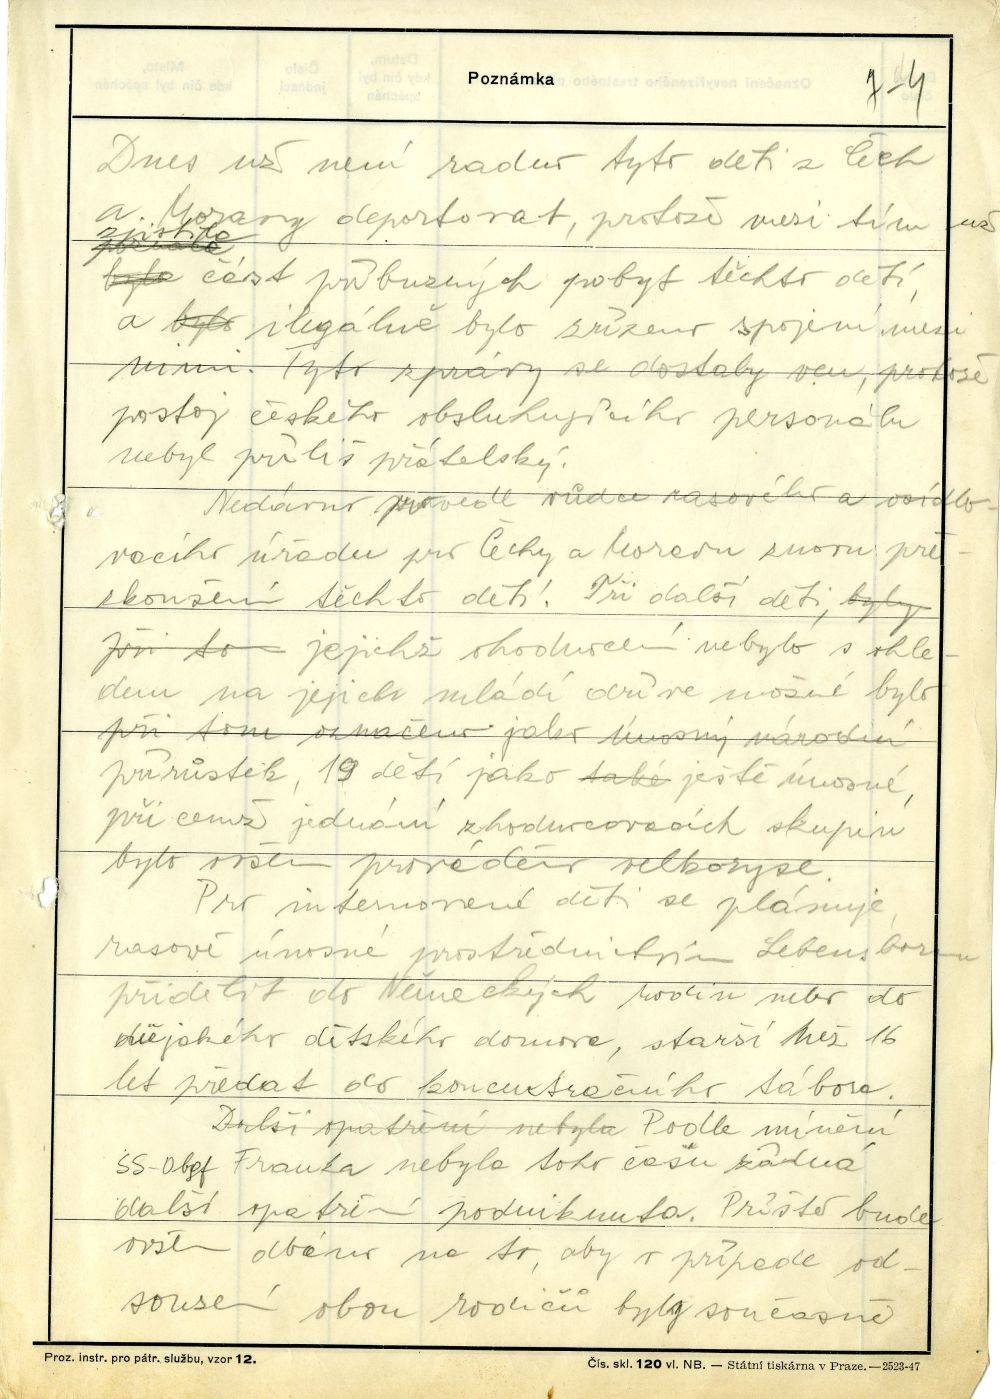 Poznámka
7-4
Dnes už není radno tyto děti z Čech
a Moravy deportovat, protože mezi tím už
zjistila
byla část příbuzných pobyt těchto dětí,
a bylo ilegálně bylo zřízeno spojení mezi
nimi. Tyto zprávy se dostaly ven, protože
postoj českého obsluhujícího personálu
nebyl příliš přátelský.
Nedávno provedl vůdce rasového a osídlo-
vacího úřadu pro Čechy a Moravu znovu pře-
zkoušení těchto dětí. Tři další děti, byly
při to jejichž zhodnocení nebylo s ohle-
dem na jejich mládí dříve možné bylo
při tom označeno jako únosný národní
přírůstek, 19 dětí jako také ještě únosné,
při čemž jednání zhodnocovacích skupin
bylo ovšem prováděno velkoryse.
Pro internované děti se plánuje,
rasově únosné prostřednictvím Lebensbornu
přidělit do Německých rodin nebo do
nějakého dětského domova, starší než 16
let předat do koncentračního tábora.
Další opatření nebyla Podle mínění
SS-Obgf Franka nebyla toho času žádná
další opatření podniknuta. Příště bude
ovšem dbáno na to, aby v případě od-
souzení obou rodičů byly současně
Proz. instr. pro pátr. službu, vzor 12.
Čís. skl. 120 vl. NB. — Státní tiskárna v Praze. — 2523-47